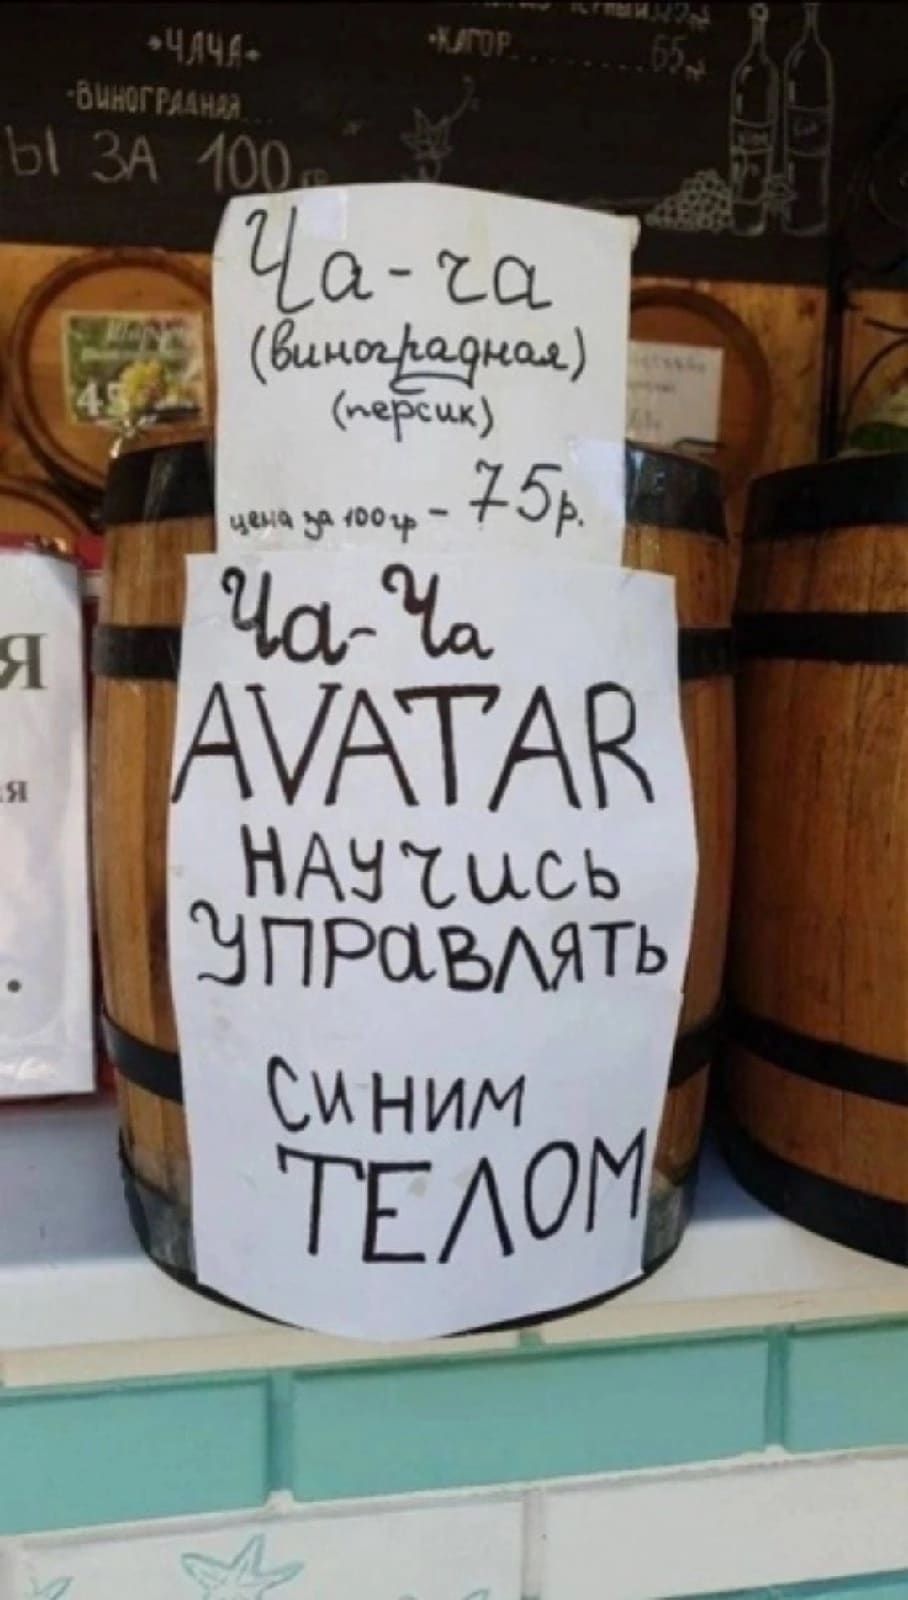 •ЧАЧА•
•КАГОР........65
•ВИНОГРАДНАЯ...
Ы ЗА 100 гр
Ча-ча
(виноградная)
(персик)
цена за 100 гр - 75р.
Ча-Ча
AVATAR
НАУЧИСЬ
УПРАВЛЯТЬ
СИНИМ
ТЕЛОМ
Я
я